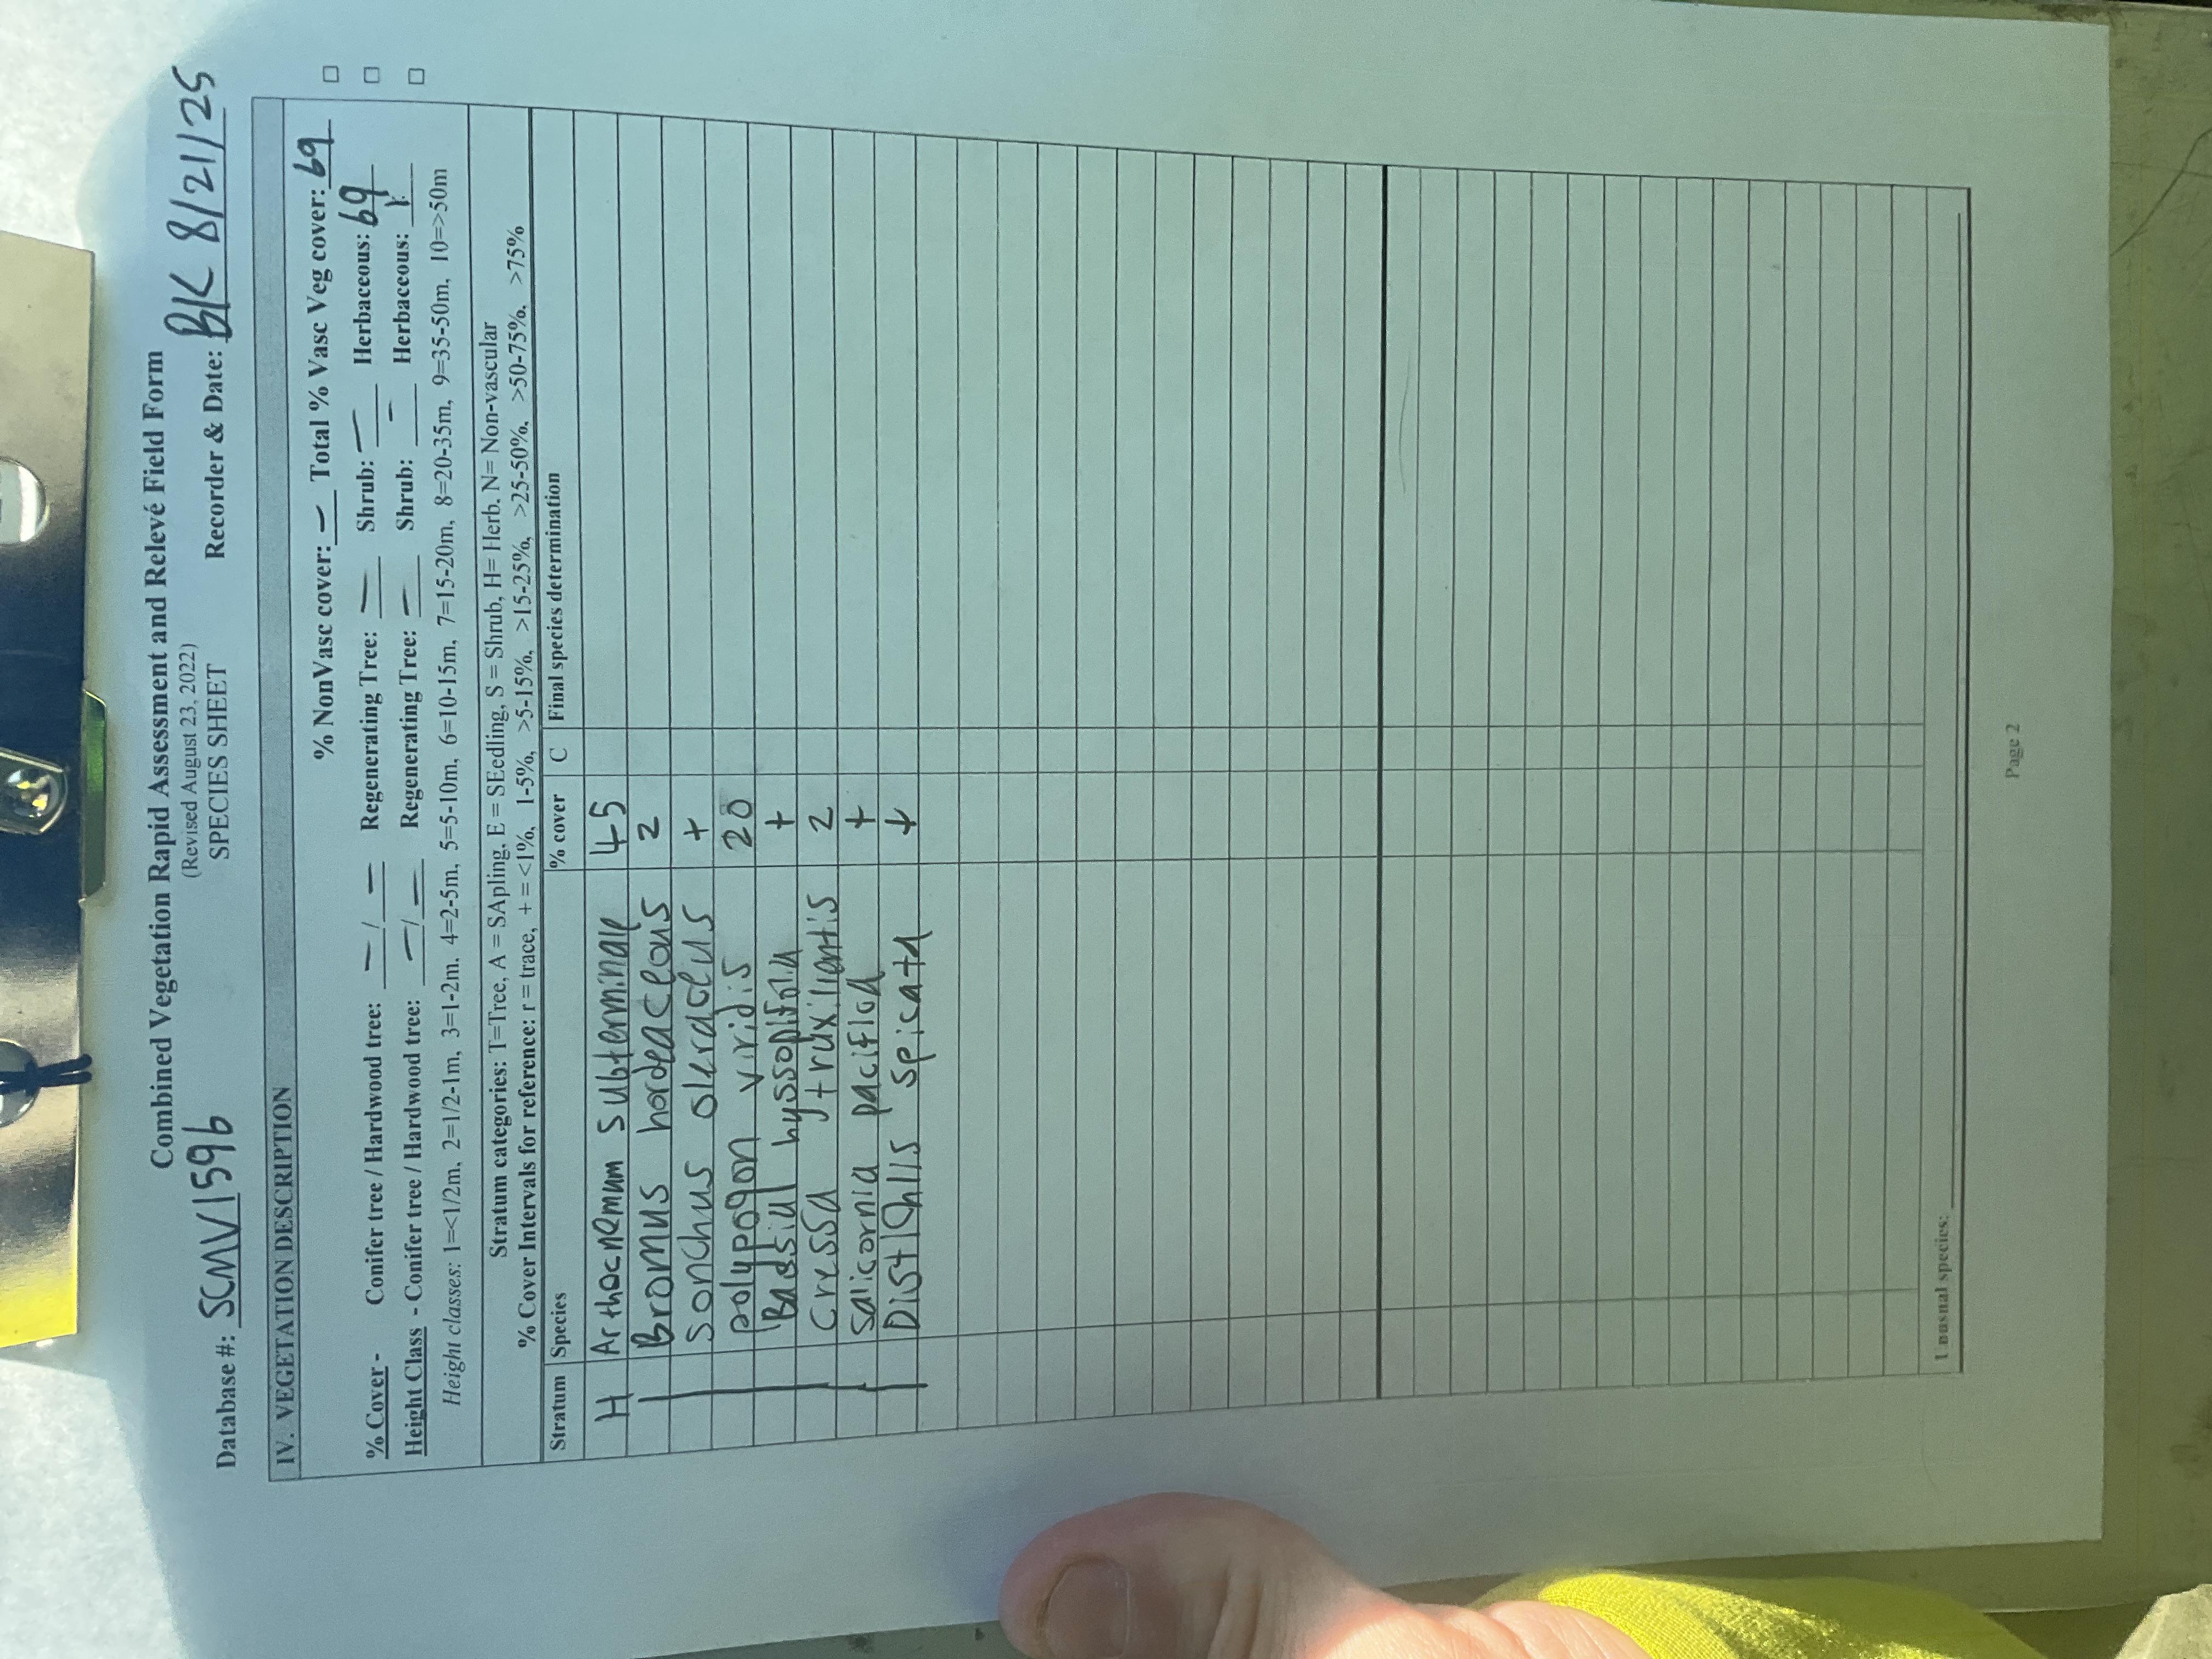 Combined Vegetation Rapid Assessment and Relevé Field Form
(Revised August 23, 2022)
Database #: SCMV1596 SPECIES SHEET Recorder & Date: BK 8/21/25
IV. VEGETATION DESCRIPTION
% NonVasc cover: — Total % Vasc Veg cover: 69
% Cover - Conifer tree / Hardwood tree: — / — Regenerating Tree: — Shrub: — Herbaceous: 69
Height Class - Conifer tree / Hardwood tree: — / — Regenerating Tree: — Shrub: — Herbaceous: 1
Height classes: 1=<1/2m, 2=1/2-1m, 3=1-2m, 4=2-5m, 5=5-10m, 6=10-15m, 7=15-20m, 8=20-35m, 9=35-50m, 10=>50m
Stratum categories: T=Tree, A = SApling, E = SEedling, S = Shrub, H= Herb, N= Non-vascular
% Cover Intervals for reference: r = trace, + = <1%, 1-5%, >5-15%, >15-25%, >25-50%, >50-75%, >75%
Stratum Species % cover C Final species determination
H Arthocnemum subterminale 45
Bromus hordeaceous 2
Sonchus oleraceus +
polypogon viridis 20
Bassia hyssopifolia +
Cressa truxiliantis 2
Salicornia pacifica +
Distichlis spicata +
Unusual species:
Page 2